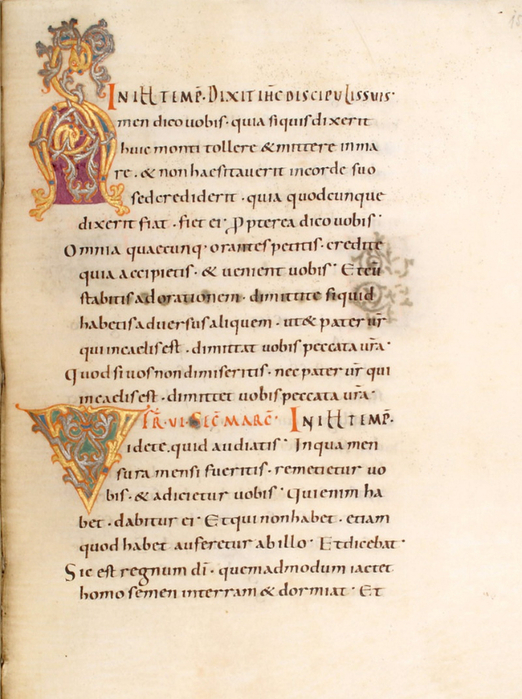 IN ILL TEMP̄. DIXIT IHC DISCIPULIS SUIS.
Amen dico uobis. quia siquis dixerit
huic monti tollere & mittere in ma
re. & non haesitauerit in corde suo
sed crediderit. quia quodcunque
dixerit fiat. fiet ei. Ꝓpterea dico uobis.
Omnia quaecunq. orantes petitis. credite
quia accipietis. & uenient uobis. Et cū
stabitis ad orationem. dimittite siquid
habetis aduersus aliquem. ut & pater ur̄
qui in caelis est. dimittat uobis peccata ur̄a.
Quod si uos non dimiseritis. nec pater ur̄ qui
in caelis est. dimittet uobis peccata ur̄a.
FR̄. VI. SEC̄ MARC̄. IN ILL TEMP̄.
Videte quid audiatis. In qua men
sura mensi fueritis. remetietur uo
bis. & adicietur uobis. Qui enim ha
bet. dabitur ei. Et qui non habet. etiam
quod habet auferetur ab illo. Et dicebat.
Sic est regnum dī. quemadmodum iactet
homo semen in terram & dormiat. Et